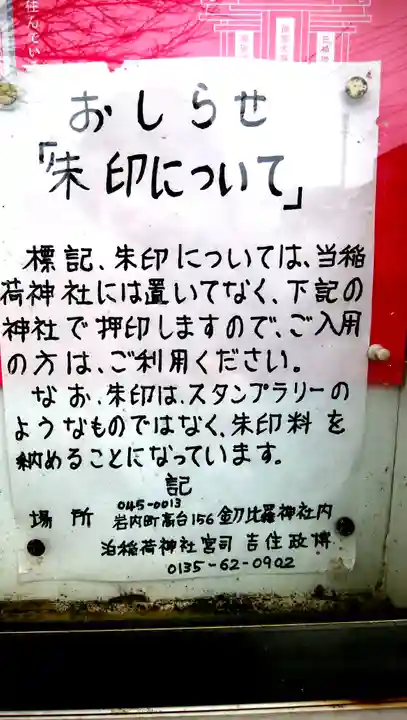 住んでい
おしらせ
「朱印について」
標記、朱印については、当稲
荷神社には置いてなく、下記の
神社で押印しますので、ご入用
の方は、ご利用ください。
なお、朱印は、スタンプラリーの
ようなものではなく、朱印料を
納めることになっています。
記
045-0013
場所 岩内町高台156金刀比羅神社内
泊稲荷神社宮司 吉住政博
0135-62-0902